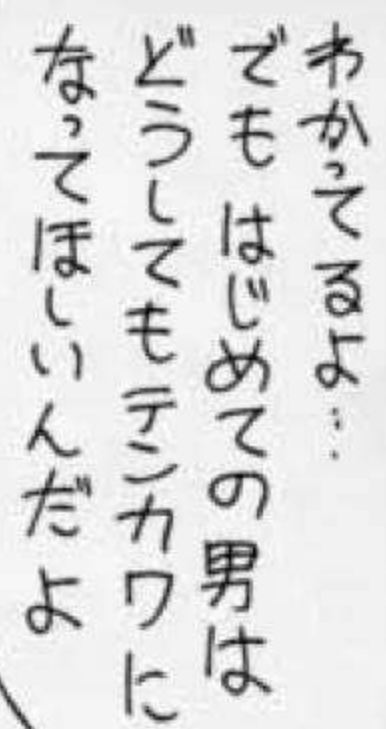 わかってるよ…
でも はじめての男は
どうしてもテンカワに
なってほしいんだよ